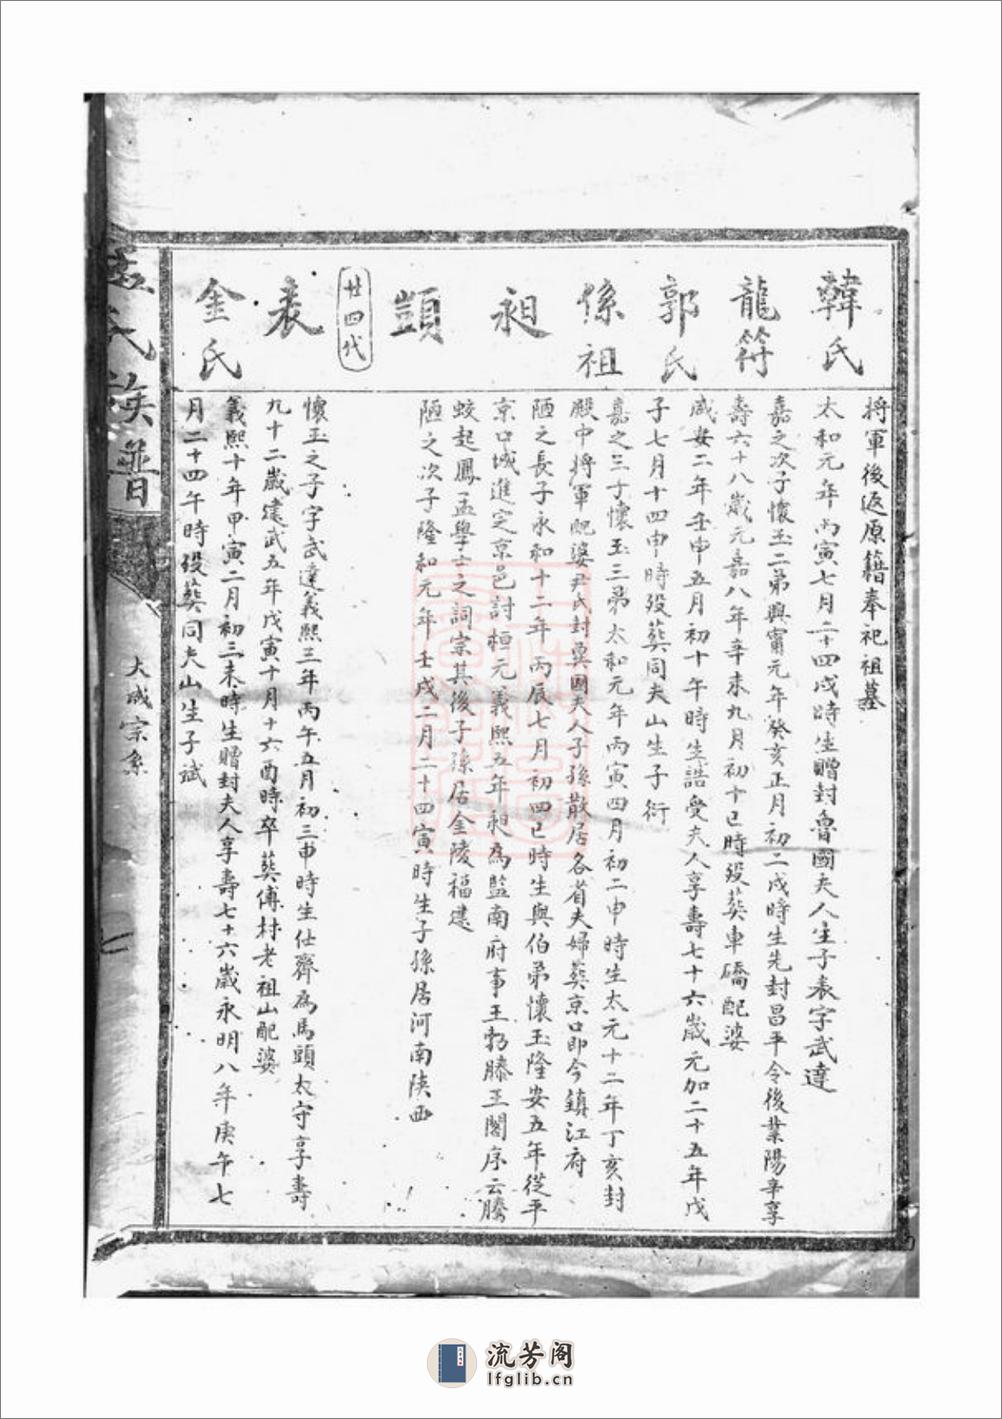 韓氏
龍符
郭氏
係祖
昶
顗
廿四代
表
金氏
將軍後返原籍奉祀祖墓
太和元年丙寅七月二十四戌時生贈封魯國夫人生子表字武達
嘉之次子懷玉二弟興甯元年癸亥正月初二戌時生先封昌平令後業陽辛享
壽六十八歲元嘉八年辛未九月初十巳時殁葬車礄配婆
咸安二年壬申五月初十午時生誥受夫人享壽七十六歲元加二十五年戊
子七月十四申時殁葬同夫山生子衍
嘉之三子懷玉三弟太和元年丙寅四月初二申時生太元十二年丁亥封
殿中將軍配婆尹氏封冀國夫人子孫散居各省夫婦葬京口即今鎮江府
陋之長子永和十二年丙辰七月初四巳時生與伯弟懷玉隆安五年從平
京口城進定京邑討桓元義熙五年昶為監南府事王勃滕王閣序云騰
蛟起鳳孟學士之詞宗其後子孫居金陵福建
陋之次子隆和元年壬戌二月二十四寅時生子孫居河南陕西
懷玉之子字武達義熙三年丙午五月初三申時生仕齊為馬頭太守享壽
九十二歲建武五年戊寅十月十六酉時卒葬傅村老祖山配婆
義熙十年甲寅二月初三未時生贈封夫人享壽七十六歲永明八年庚午七
月二十四午時殁葬同夫山生子斌
孟氏族譜
大成宗系
七
流芳阁
lfglib.cn